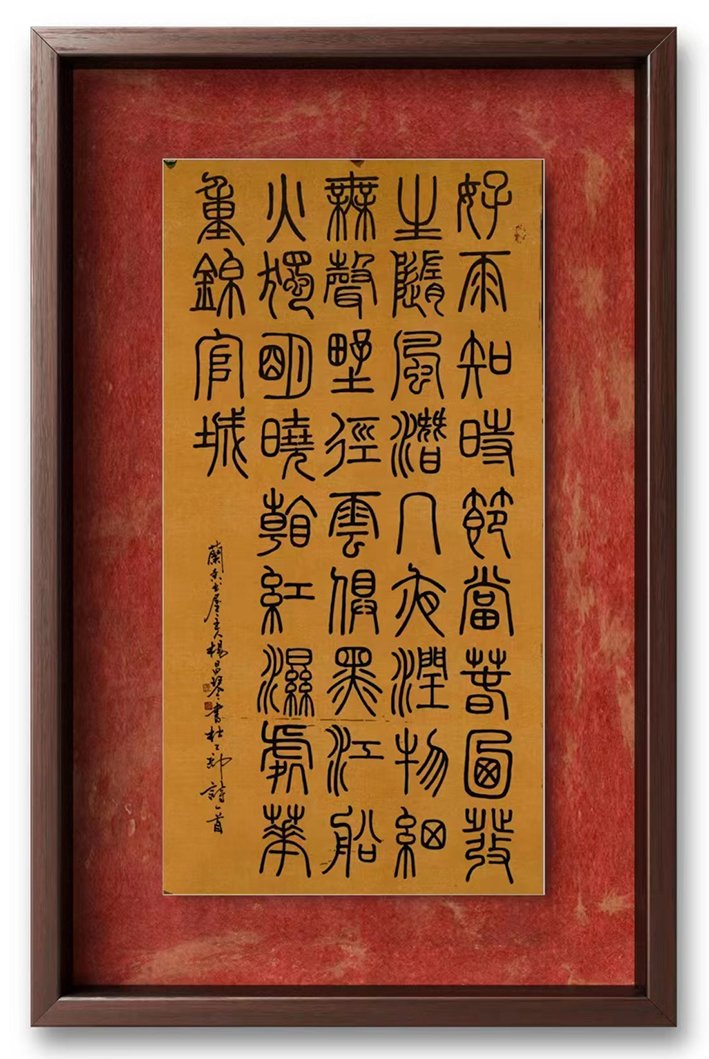 好雨知時節當春迺發
生隨風潛入夜潤物細
無聲野徑雲俱黑江船
火獨明曉看紅濕處華
重錦官城
蘭香書屋主人楊昌琴書杜工部詩一首